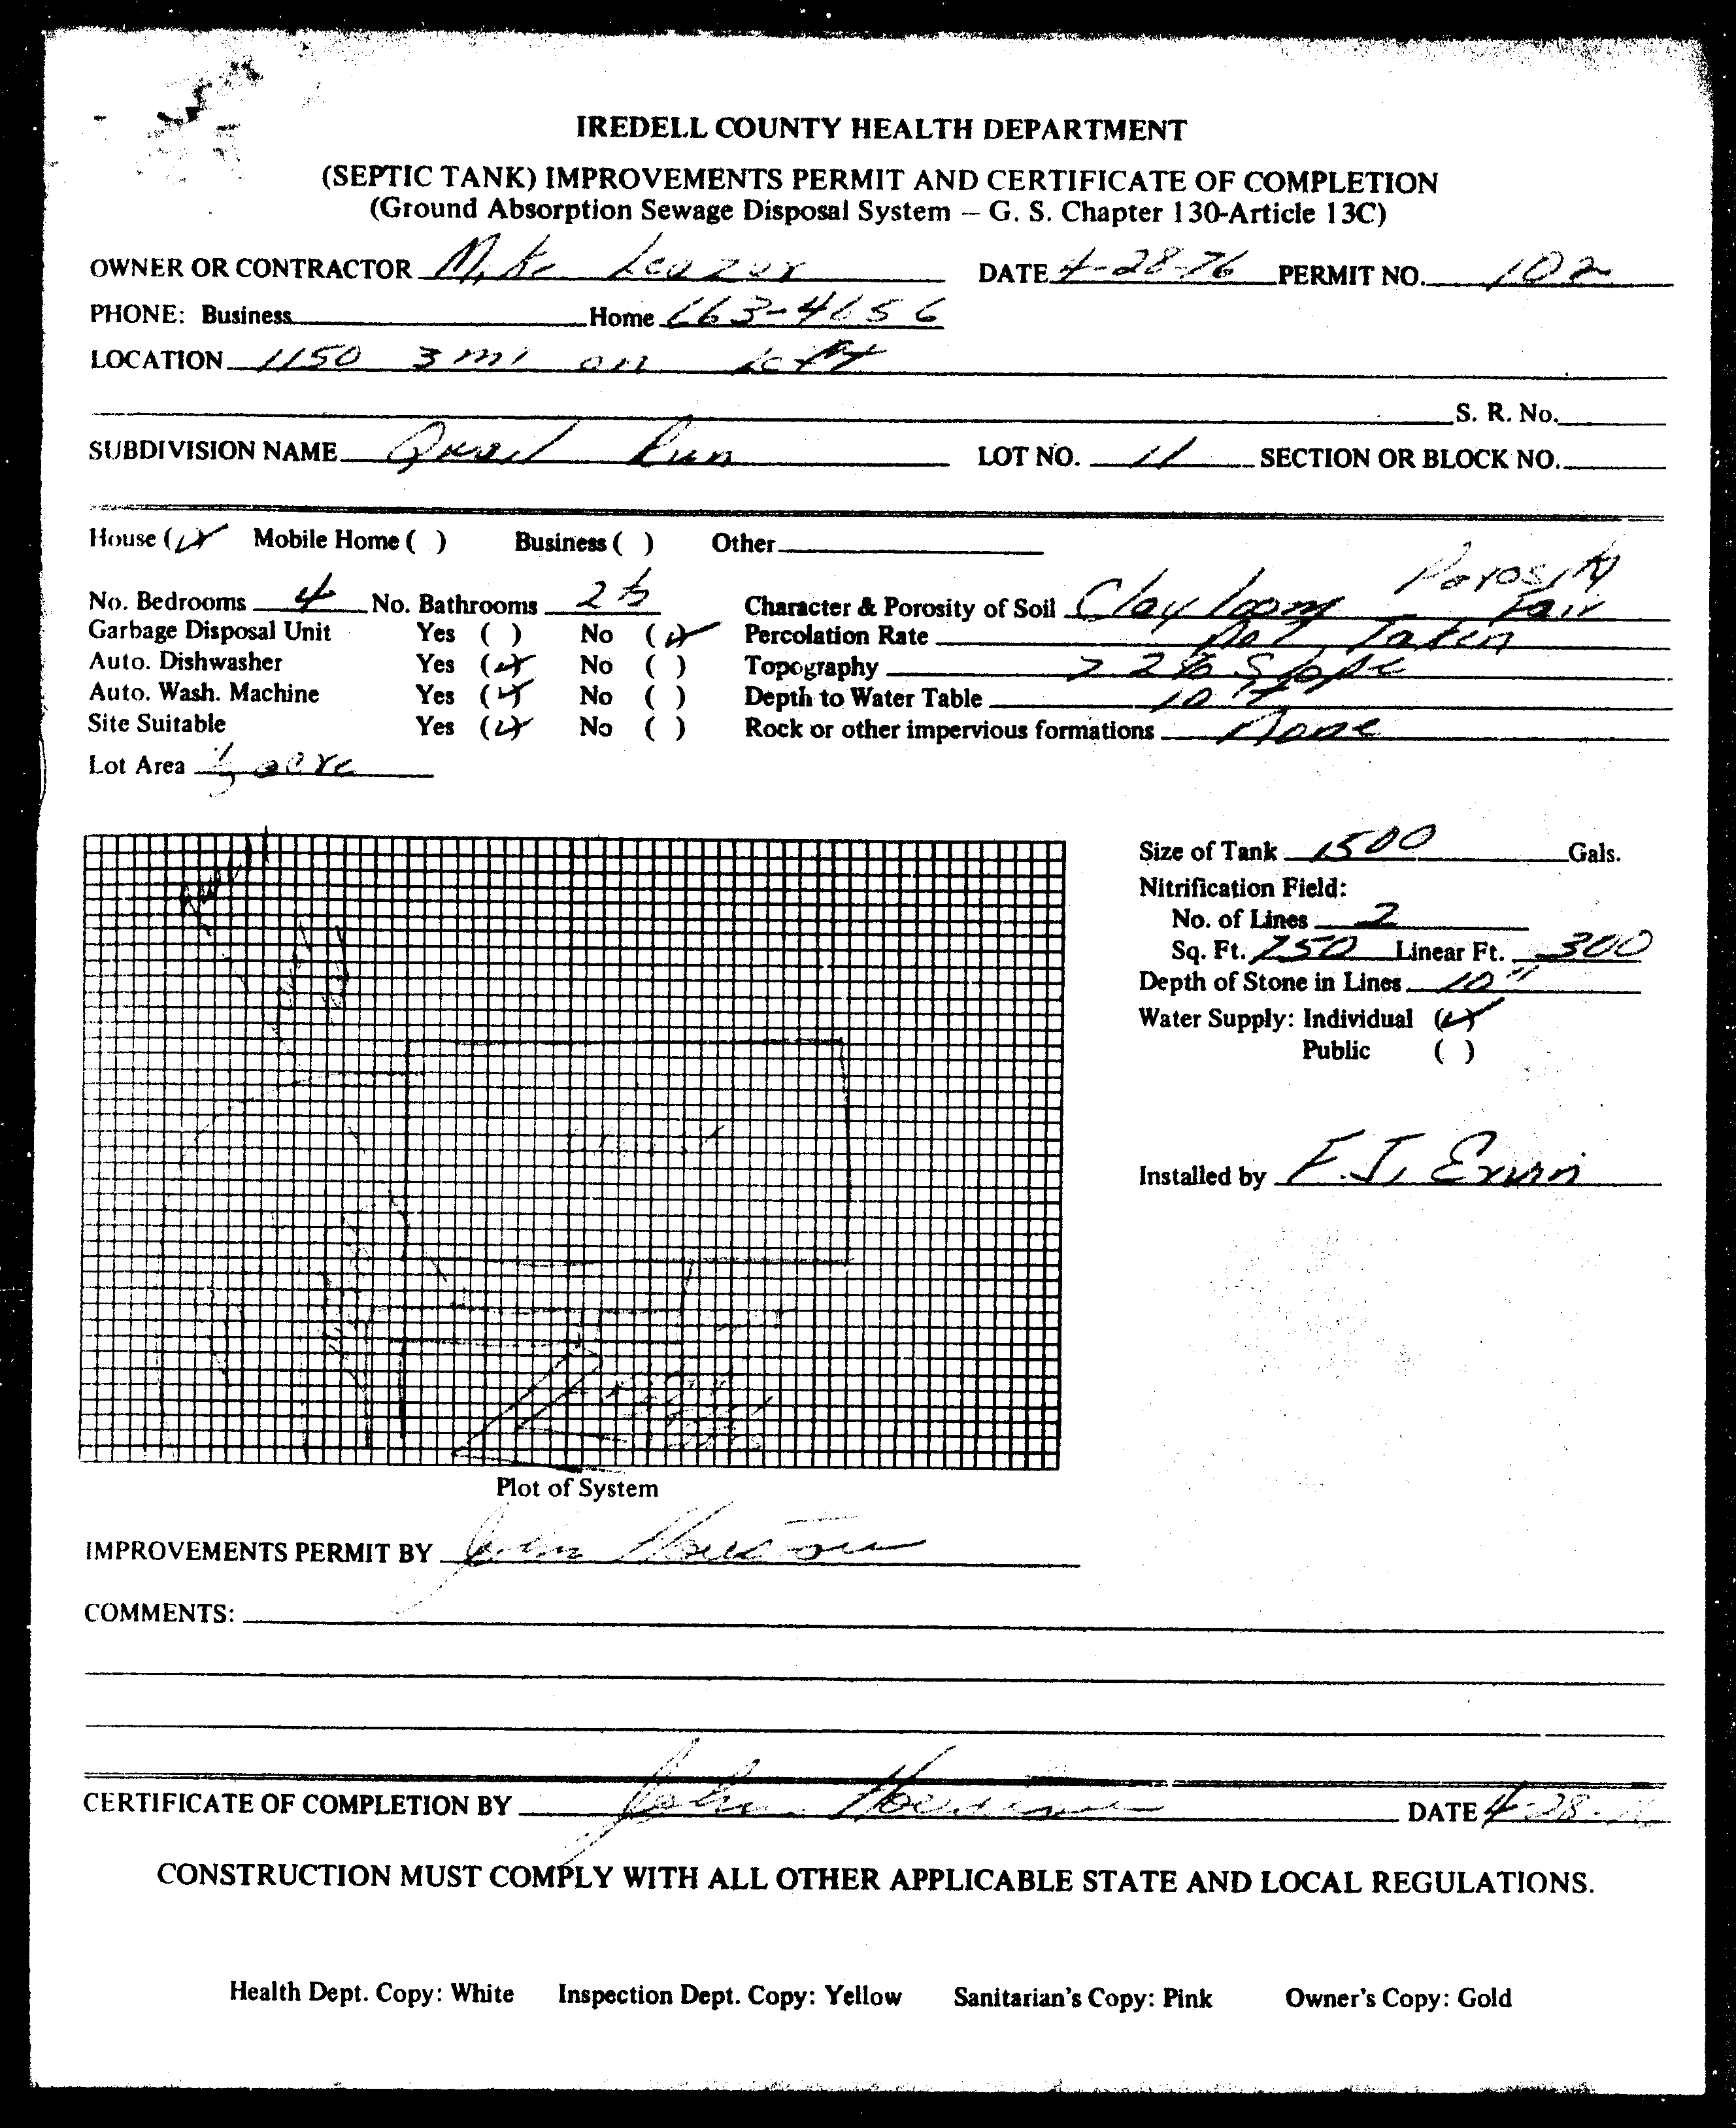 IREDELL COUNTY HEALTH DEPARTMENT
(SEPTIC TANK) IMPROVEMENTS PERMIT AND CERTIFICATE OF COMPLETION
(Ground Absorption Sewage Disposal System – G. S. Chapter 130-Article 13C)
OWNER OR CONTRACTOR Mike Leazer DATE 4-28-76 PERMIT NO. 102
PHONE: Business Home 663-4656
LOCATION 1150 3 mi on left
S. R. No.
SUBDIVISION NAME Quail Run LOT NO. 11 SECTION OR BLOCK NO.
House (✓) Mobile Home ( ) Business ( ) Other
Porosity
No. Bedrooms 4 No. Bathrooms 2 ½ Character & Porosity of Soil Clay loam - Fair
Garbage Disposal Unit Yes ( ) No (✓) Percolation Rate Not Taken
Auto. Dishwasher Yes (✓) No ( ) Topography > 2% Slope
Auto. Wash. Machine Yes (✓) No ( ) Depth to Water Table 10 ft
Site Suitable Yes (✓) No ( ) Rock or other impervious formations None
Lot Area acre
Size of Tank 1500 Gals.
Nitrification Field:
No. of Lines 2
Sq. Ft. 750 Linear Ft. 300
Depth of Stone in Lines 10"
Water Supply: Individual (✓)
Public ( )
Installed by F.J. Ervin
Plot of System
IMPROVEMENTS PERMIT BY John Houston
COMMENTS:
CERTIFICATE OF COMPLETION BY John Houston DATE 4-28-76
CONSTRUCTION MUST COMPLY WITH ALL OTHER APPLICABLE STATE AND LOCAL REGULATIONS.
Health Dept. Copy: White Inspection Dept. Copy: Yellow Sanitarian's Copy: Pink Owner's Copy: Gold